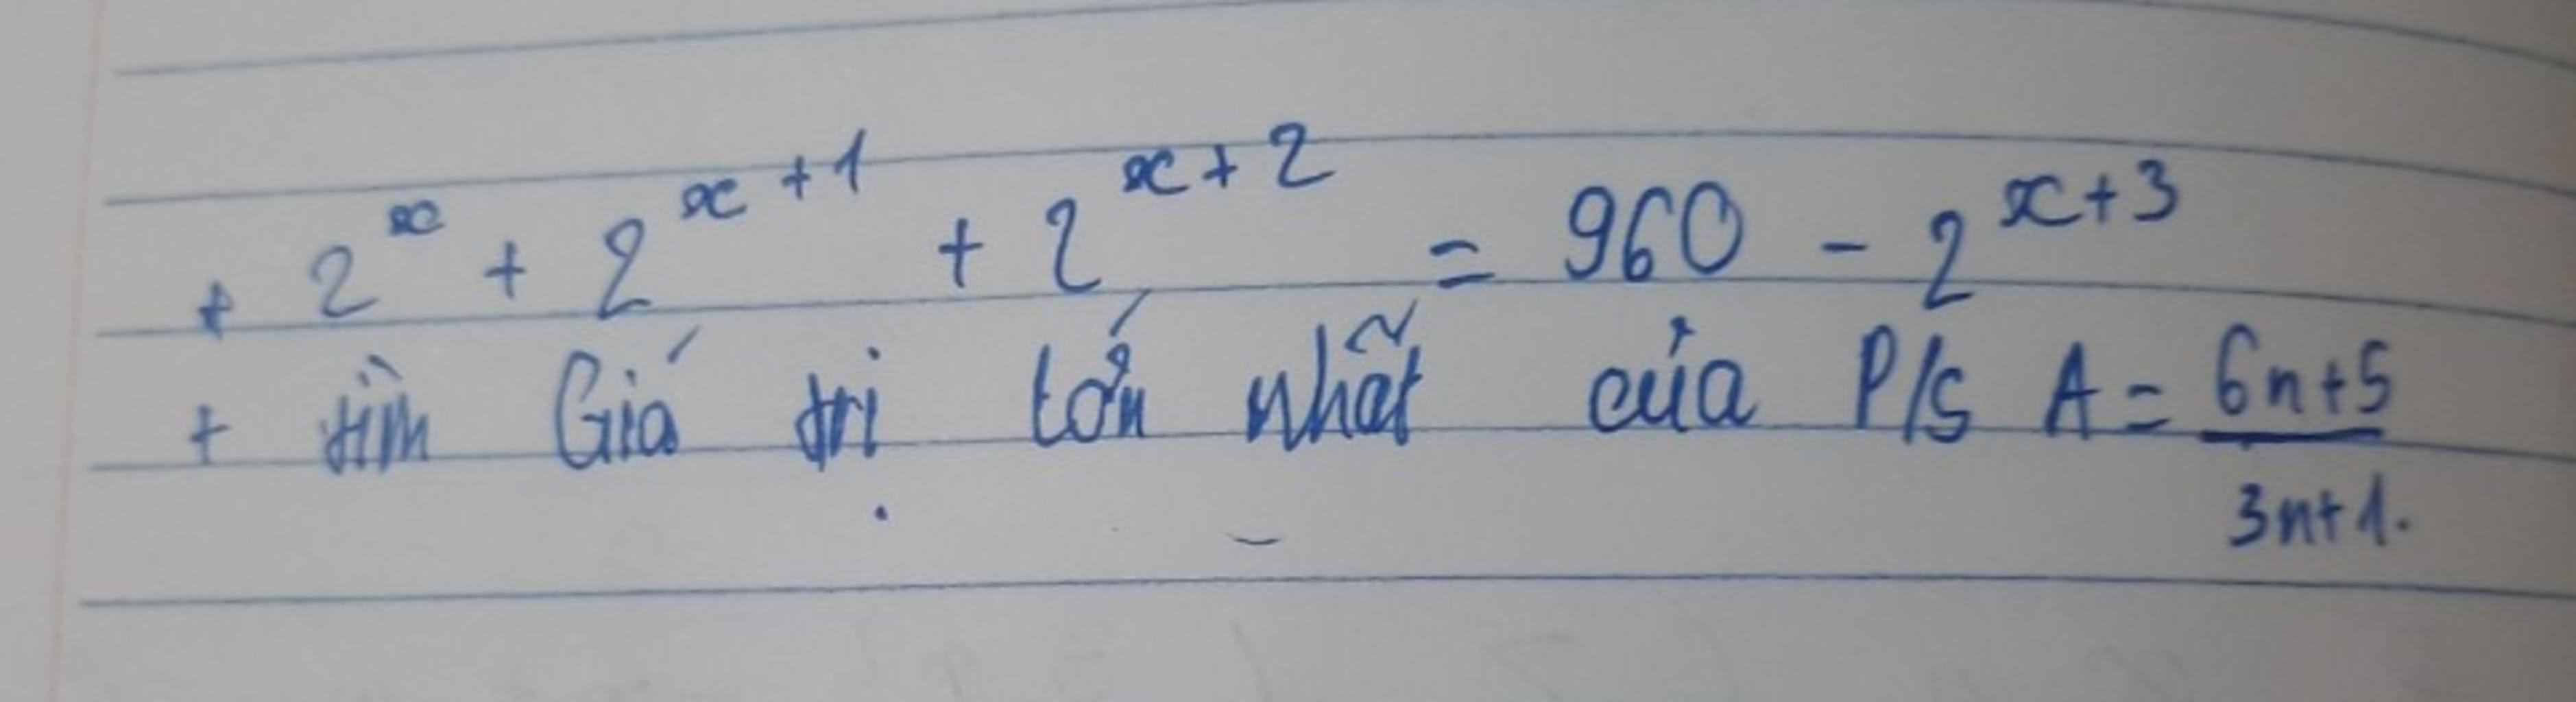 + 2^x + 2^{x+1} + 2^{x+2} = 960 - 2^{x+3}
+ tìm Giá trị lớn nhất của P/s A = \frac{6n+5}{3n+1}.